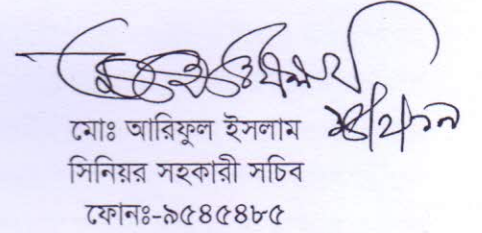 মোঃ আরিফুল ইসলাম
সিনিয়র সহকারী সচিব
ফোনঃ-৯৫৪৫৪৮৫